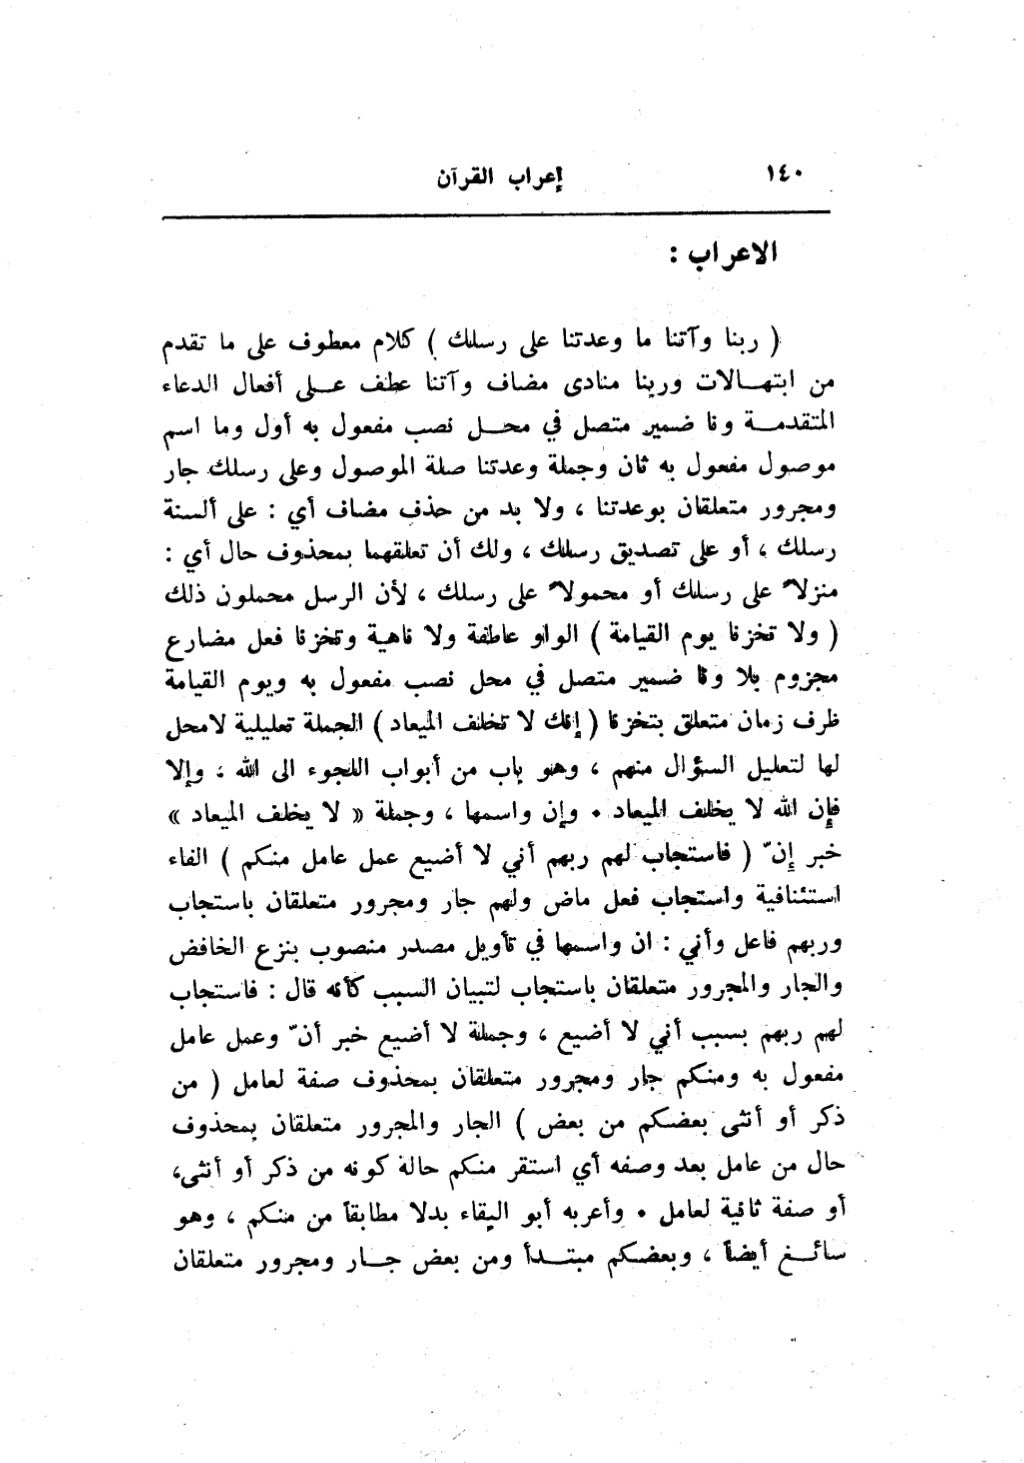 ١٤٠ إعراب القرآن
الاعراب :
( ربنا وآتنا ما وعدتنا على رسلك ) كلام معطوف على ما تقدم
من ابتهالات وربنا منادى مضاف وآتنا عطف على أفعال الدعاء
المتقدمة ونا ضمير متصل في محل نصب مفعول به أول وما اسم
موصول مفعول به ثان وجملة وعدتنا صلة الموصول وعلى رسلك جار
ومجرور متعلقان بوعدتنا ، ولا بد من حذف مضاف أي : على ألسنة
رسلك ، أو على تصديق رسلك ، ولك أن تعلقهما بمحذوف حال أي :
منزلاً على رسلك أو محمولاً على رسلك ، لأن الرسل محملون ذلك
( ولا تخزنا يوم القيامة ) الواو عاطفة ولا ناهية وتخزنا فعل مضارع
مجزوم بلا ونا ضمير متصل في محل نصب مفعول به ويوم القيامة
ظرف زمان متعلق بتخزنا ( إنك لا تخلف الميعاد ) الجملة تعليلية لامحل
لها لتعليل السؤال منهم ، وهو باب من أبواب اللجوء الى الله ، وإلا
فإن الله لا يخلف الميعاد . وإن واسمها ، وجملة « لا يخلف الميعاد »
خبر إنّ ( فاستجاب لهم ربهم أني لا أضيع عمل عامل منكم ) الفاء
استئنافية واستجاب فعل ماض ولهم جار ومجرور متعلقان باستجاب
وربهم فاعل وأني : ان واسمها في تأويل مصدر منصوب بنزع الخافض
والجار والمجرور متعلقان باستجاب لتبيان السبب كأنه قال : فاستجاب
لهم ربهم بسبب أني لا أضيع ، وجملة لا أضيع خبر أنّ وعمل عامل
مفعول به ومنكم جار ومجرور متعلقان بمحذوف صفة لعامل ( من
ذكر أو أنثى بعضكم من بعض ) الجار والمجرور متعلقان بمحذوف
حال من عامل بعد وصفه أي استقر منكم حالة كونه من ذكر أو أنثى،
أو صفة ثانية لعامل . وأعربه أبو البقاء بدلا مطابقاً من منكم ، وهو
سائغ أيضاً ، وبعضكم مبتدأ ومن بعض جار ومجرور متعلقان